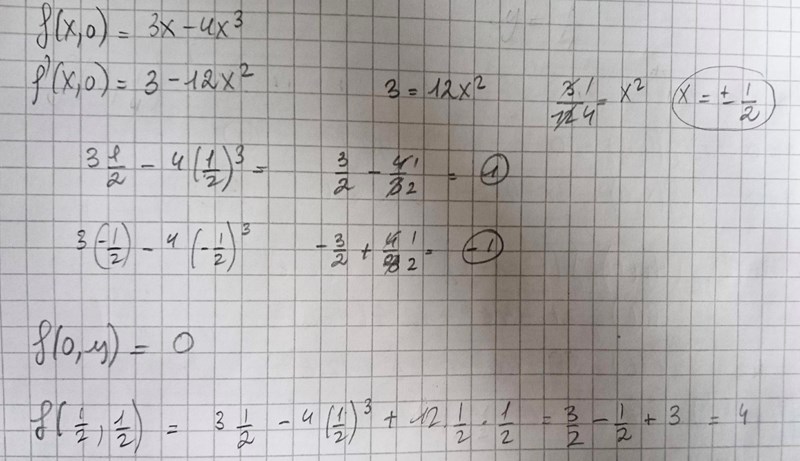 f(x,0) = 3x - 4x³
f'(x,0) = 3 - 12x² 3 = 12x² 3/12 1/4 = x² x = ± 1/2
3 1/2 - 4(1/2)³ = 3/2 - 4/8 1/2 = 1
3(-1/2) - 4(-1/2)³ -3/2 + 4/8 1/2 = -1
f(0,y) = 0
f(1/2, 1/2) = 3 1/2 - 4(1/2)³ + 12 · 1/2 · 1/2 = 3/2 - 1/2 + 3 = 4